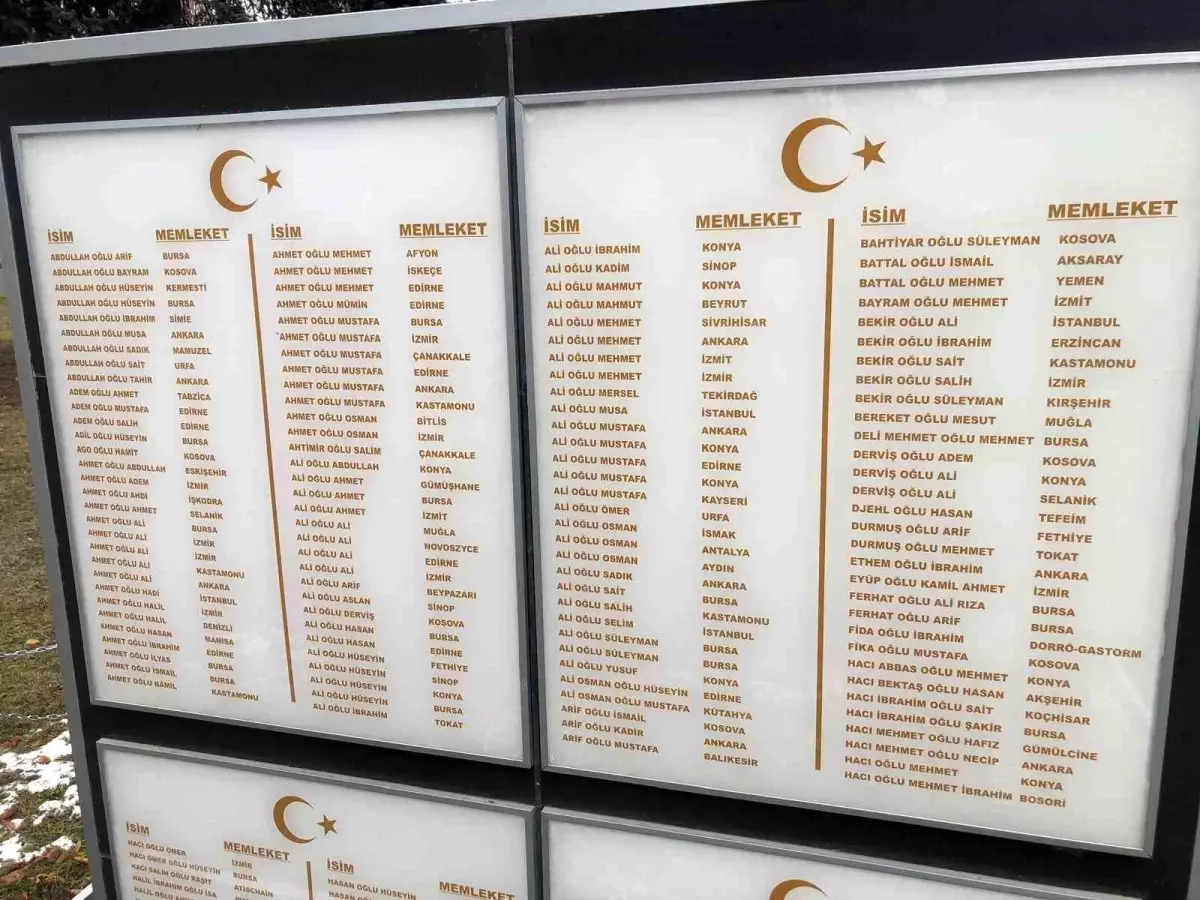 İSİM MEMLEKET
ABDULLAH OĞLU ARİF BURSA
ABDULLAH OĞLU BAYRAM KOSOVA
ABDULLAH OĞLU HÜSEYİN KERMESTİ
ABDULLAH OĞLU HÜSEYİN BURSA
ABDULLAH OĞLU İBRAHİM SİMİE
ABDULLAH OĞLU MUSA ANKARA
ABDULLAH OĞLU SADIK MAMUZEL
ABDULLAH OĞLU SAİT URFA
ABDULLAH OĞLU TAHIR ANKARA
ADEM OĞLU AHMET TABZİCA
ADEM OĞLU MUSTAFA EDİRNE
ADEM OĞLU SALİH EDİRNE
ADİL OĞLU HÜSEYİN BURSA
AGO OĞLU HAMİT KOSOVA
AHMET OĞLU ABDULLAH ESKİŞEHİR
AHMET OĞLU ADEM İZMİR
AHMET OĞLU AHDİ İŞKODRA
AHMET OĞLU AHMET SELANİK
AHMET OĞLU ALİ BURSA
AHMET OĞLU ALİ İZMİR
AHMET OĞLU ALİ İZMİR
AHMET OĞLU ALİ KASTAMONU
AHMET OĞLU ALİ ANKARA
AHMET OĞLU HADİ İSTANBUL
AHMET OĞLU HALİL İZMİR
AHMET OĞLU HALİL DENİZLİ
AHMET OĞLU HASAN MANİSA
AHMET OĞLU İBRAHİM EDİRNE
AHMET OĞLU İLYAS BURSA
AHMET OĞLU İSMAİL BURSA
AHMET OĞLU KAMİL KASTAMONU
İSİM MEMLEKET
AHMET OĞLU MEHMET AFYON
AHMET OĞLU MEHMET İSKEÇE
AHMET OĞLU MEHMET EDİRNE
AHMET OĞLU MÜMİN EDİRNE
AHMET OĞLU MUSTAFA BURSA
AHMET OĞLU MUSTAFA İZMİR
AHMET OĞLU MUSTAFA ÇANAKKALE
AHMET OĞLU MUSTAFA EDİRNE
AHMET OĞLU MUSTAFA ANKARA
AHMET OĞLU MUSTAFA KASTAMONU
AHMET OĞLU OSMAN BİTLİS
AHMET OĞLU OSMAN İZMİR
AHTİMİR OĞLU SALİM ÇANAKKALE
ALİ OĞLU ABDULLAH KONYA
ALİ OĞLU AHMET GÜMÜŞHANE
ALİ OĞLU AHMET BURSA
ALİ OĞLU AHMET İZMİT
ALİ OĞLU ALİ MUĞLA
ALİ OĞLU ALİ NOVOSZYCE
ALİ OĞLU ALİ EDİRNE
ALİ OĞLU ALİ İZMİR
ALİ OĞLU ARİF BEYPAZARI
ALİ OĞLU ASLAN SİNOP
ALİ OĞLU DERVİŞ KOSOVA
ALİ OĞLU HASAN BURSA
ALİ OĞLU HASAN EDİRNE
ALİ OĞLU HÜSEYİN FETHİYE
ALİ OĞLU HÜSEYİN SİNOP
ALİ OĞLU HÜSEYİN KONYA
ALİ OĞLU HÜSEYİN BURSA
ALİ OĞLU İBRAHİM TOKAT
İSİM MEMLEKET
ALİ OĞLU İBRAHİM KONYA
ALİ OĞLU KADİM SİNOP
ALİ OĞLU MAHMUT KONYA
ALİ OĞLU MAHMUT BEYRUT
ALİ OĞLU MEHMET SİVRİHİSAR
ALİ OĞLU MEHMET ANKARA
ALİ OĞLU MEHMET İZMİT
ALİ OĞLU MEHMET İZMİR
ALİ OĞLU MERSEL TEKİRDAĞ
ALİ OĞLU MUSA İSTANBUL
ALİ OĞLU MUSTAFA ANKARA
ALİ OĞLU MUSTAFA KONYA
ALİ OĞLU MUSTAFA EDİRNE
ALİ OĞLU MUSTAFA KONYA
ALİ OĞLU MUSTAFA KAYSERİ
ALİ OĞLU ÖMER URFA
ALİ OĞLU OSMAN İSMAK
ALİ OĞLU OSMAN ANTALYA
ALİ OĞLU OSMAN AYDIN
ALİ OĞLU SADIK ANKARA
ALİ OĞLU SAİT BURSA
ALİ OĞLU SALİH KASTAMONU
ALİ OĞLU SELİM İSTANBUL
ALİ OĞLU SÜLEYMAN BURSA
ALİ OĞLU SÜLEYMAN BURSA
ALİ OĞLU YUSUF KONYA
ALİ OSMAN OĞLU HÜSEYİN EDİRNE
ALİ OSMAN OĞLU MUSTAFA KÜTAHYA
ARİF OĞLU İSMAİL KOSOVA
ARİF OĞLU KADİR ANKARA
ARİF OĞLU MUSTAFA BALIKESİR
İSİM MEMLEKET
BAHTİYAR OĞLU SÜLEYMAN KOSOVA
BATTAL OĞLU İSMAİL AKSARAY
BATTAL OĞLU MEHMET YEMEN
BAYRAM OĞLU MEHMET İZMİT
BEKİR OĞLU ALİ İSTANBUL
BEKİR OĞLU İBRAHİM ERZİNCAN
BEKİR OĞLU SAİT KASTAMONU
BEKİR OĞLU SALİH İZMİR
BEKİR OĞLU SÜLEYMAN KIRŞEHİR
BEREKET OĞLU MESUT MUĞLA
DELİ MEHMET OĞLU MEHMET BURSA
DERVİŞ OĞLU ADEM KOSOVA
DERVİŞ OĞLU ALİ KONYA
DERVİŞ OĞLU ALİ SELANİK
DJEHL OĞLU HASAN TEFEİM
DURMUŞ OĞLU ARİF FETHİYE
DURMUŞ OĞLU MEHMET TOKAT
ETHEM OĞLU İBRAHİM ANKARA
EYÜP OĞLU KAMİL AHMET İZMİR
FERHAT OĞLU ALİ RIZA BURSA
FERHAT OĞLU ARİF BURSA
FİDA OĞLU İBRAHİM DORRÓ-GASTORM
FİKA OĞLU MUSTAFA KOSOVA
HACI ABBAS OĞLU MEHMET KONYA
HACI BEKTAŞ OĞLU HASAN AKŞEHİR
HACI İBRAHİM OĞLU SAİT KOÇHİSAR
HACI İBRAHİM OĞLU ŞAKİR BURSA
HACI MEHMET OĞLU HAFIZ GÜMÜLCİNE
HACI MEHMET OĞLU NECİP ANKARA
HACI OĞLU MEHMET KONYA
HACI OĞLU MEHMET İBRAHİM BOSORİ
İSİM MEMLEKET
HACI OĞLU ÖMER İZMİR
HACI ÖMER OĞLU HÜSEYİN BURSA
HACI SALİH OĞLU RAŞİT ATISCHAIN
HALİL İBRAHİM OĞLU İSA BURSA
HALİL OĞLU
İSİM MEMLEKET
HASAN OĞLU HÜSEYİN
HASAN OĞLU